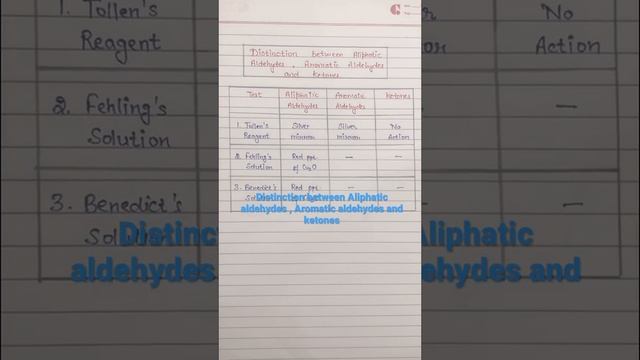 Distinction between Aliphatic
Aldehydes, Aromatic Aldehydes
and ketones
Test Aliphatic Aldehydes Aromatic Aldehydes ketones
1. Tollen's Reagent Silver mirror Silver mirror No Action
2. Fehling's Solution Red ppt of Cu2O — —
3. Benedict's Red ppt — —
Distinction between Aliphatic
aldehydes , Aromatic aldehydes and
ketones
1. Tollen's
Reagent
No
Action
2. Fehling's
Solution
—
3. Benedict's
—
Distinc
Aliphatic
aldehydes
ehydes and